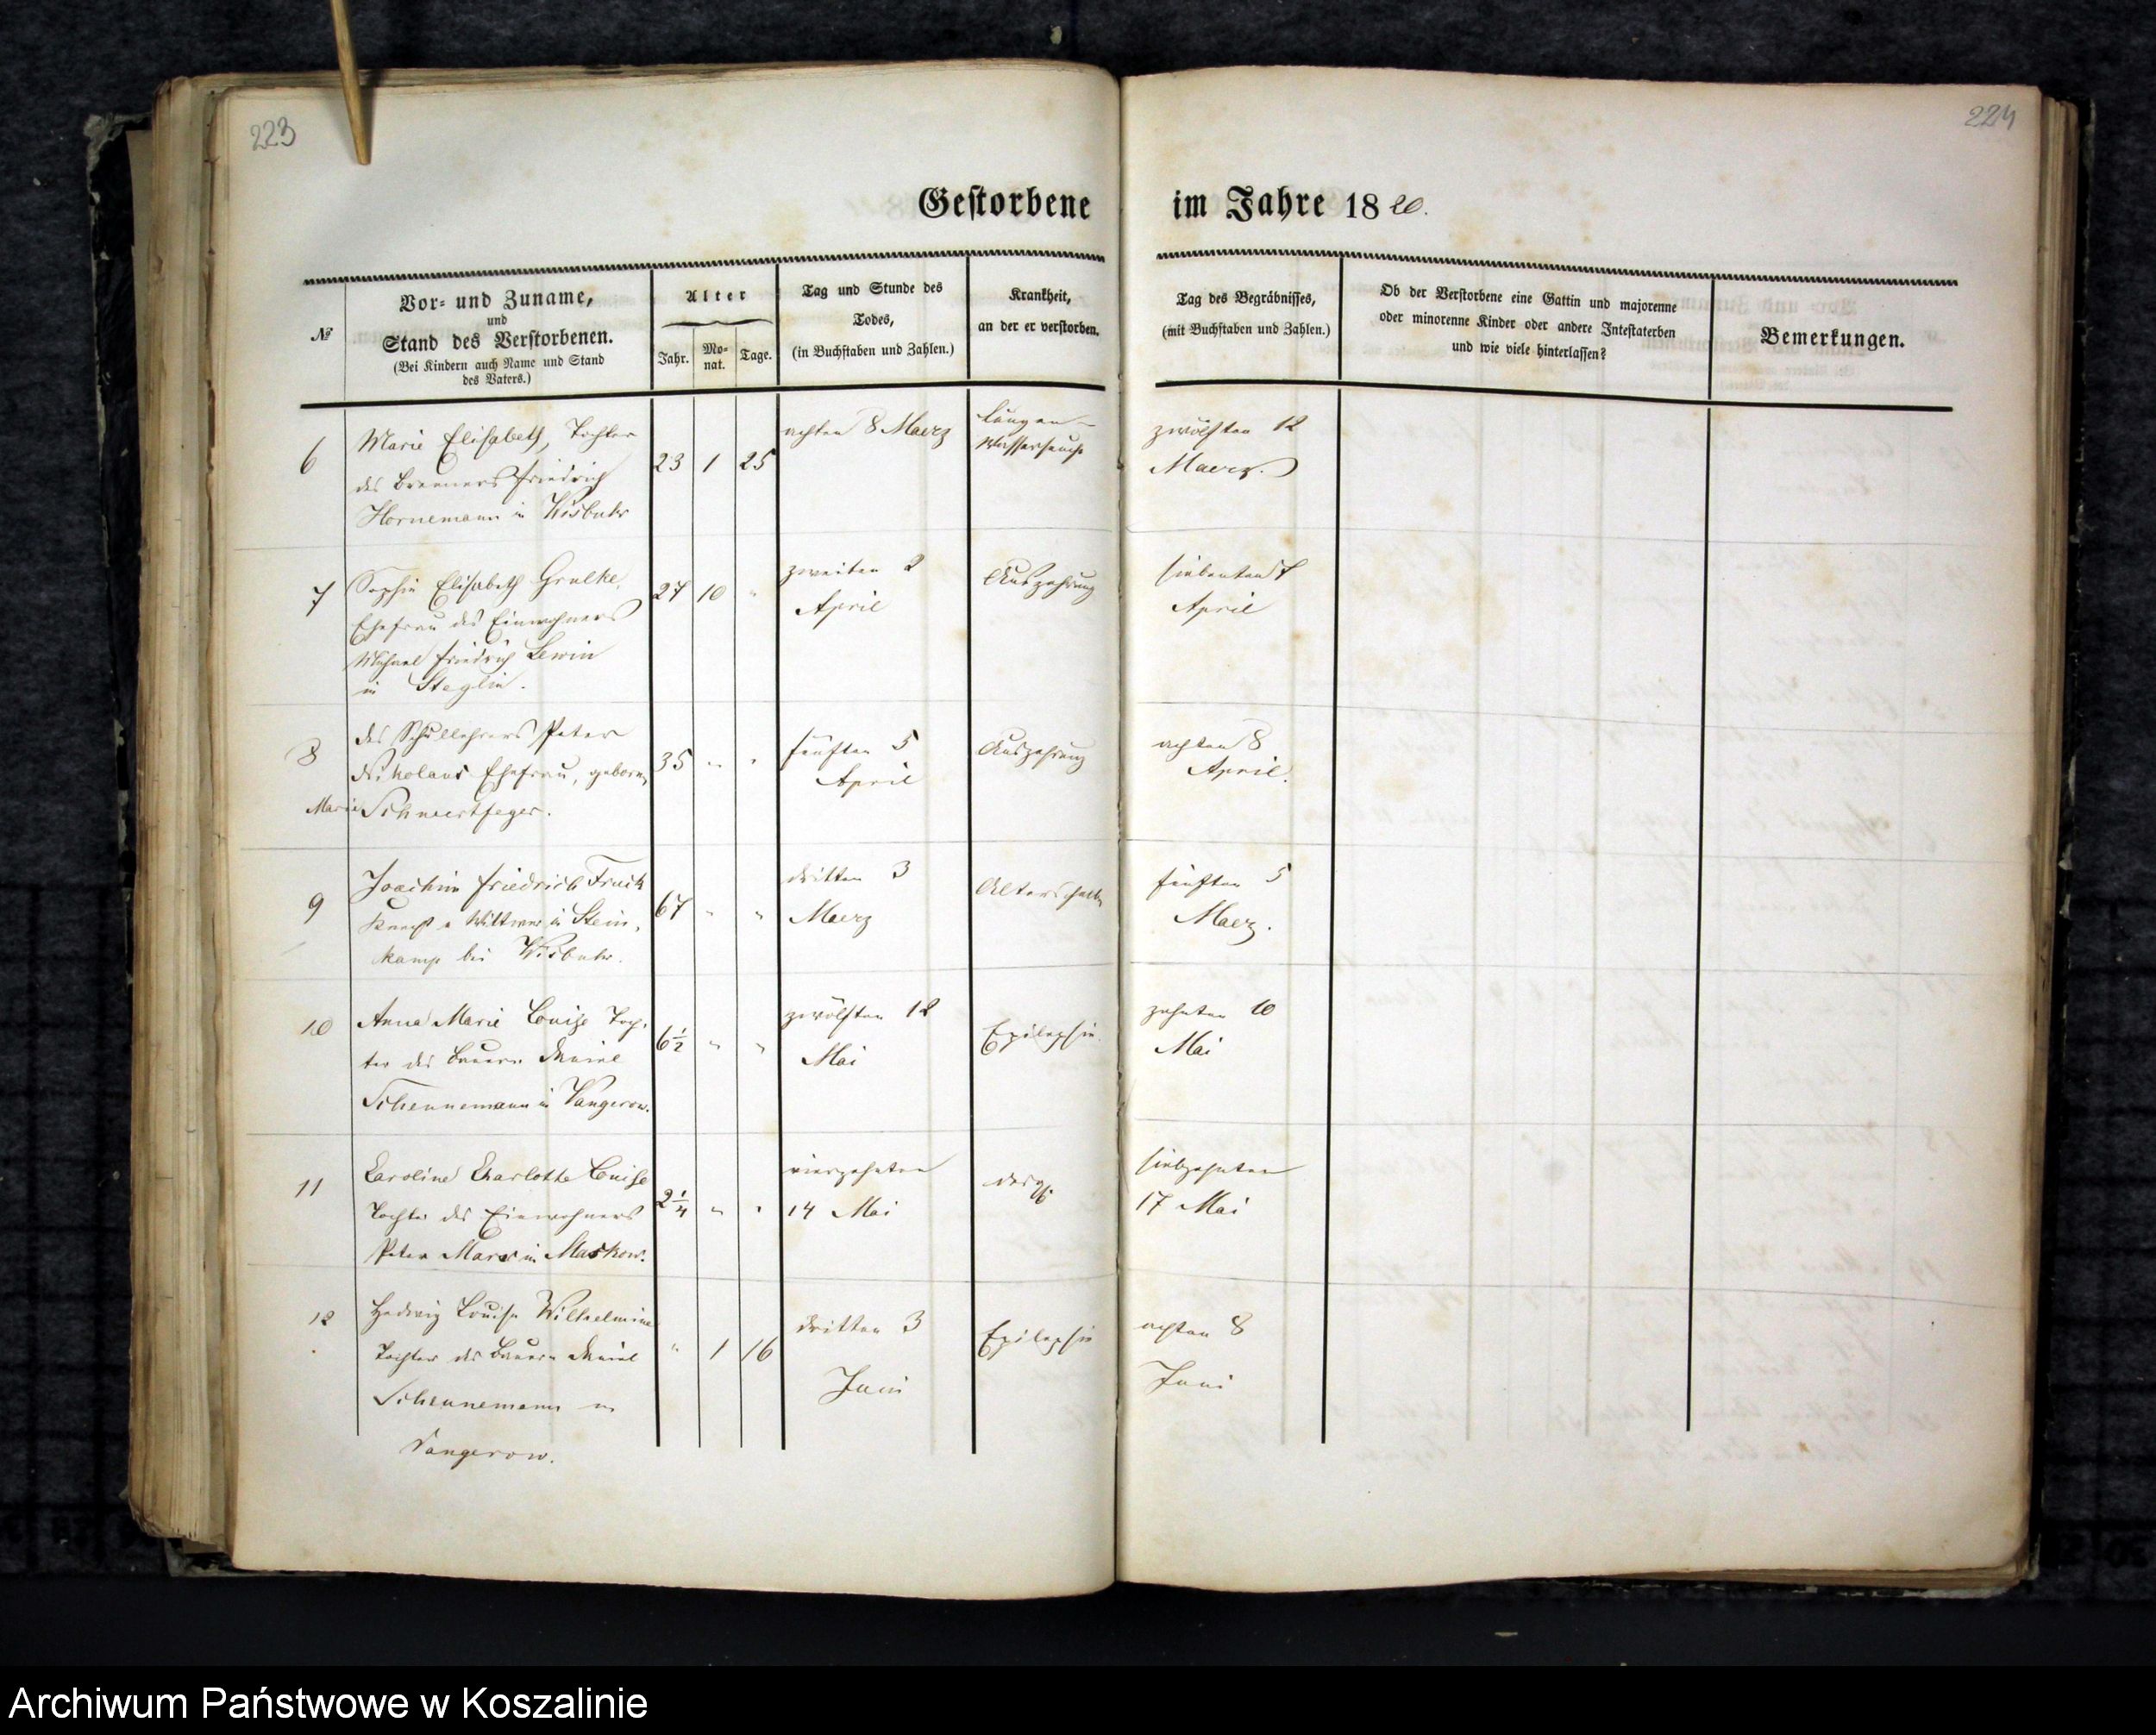 223
224
Gestorbene im Jahre 1820.
№
Vor- und Zuname,
und
Stand des Verstorbenen.
(Bei Kindern auch Name und Stand
des Vaters.)
Alter
Jahr.
Mo-
nat.
Tage.
Tag und Stunde des
Todes,
(in Buchstaben und Zahlen.)
Krankheit,
an der er verstorben.
Tag des Begräbnisses,
(mit Buchstaben und Zahlen.)
Ob der Verstorbene eine Gattin und majorenne
oder minorenne Kinder oder andere Intestaterben
und wie viele hinterlassen?
Bemerkungen.
6
Marie Elisabeth, Tochter
des Brenners Friedrich
Hornemann in Wisbuhr
23 1 25
achten 8 Maerz
Lungen-
Wassersucht
zwölften 12
Maerz.
7
Sophie Elisabeth Grulke,
Ehefrau des Einwohners
Michael Friedrich Lewin
in Steglin.
27 10 "
zweiten 2
April
Auszehrung
siebenten 7
April
8
des Schullehrers Peter
Nikolaus Ehefrau, geborne
Marie Schwertfeger.
35 " "
fünften 5
April
Auszehrung
achten 8
April.
9
Joachim Friedrich
Knecht u Wittwer in Stein-
kamp bei Wisbuhr.
67 " "
dritten 3
Maerz
Altersschwäche
fünften 5
Maerz.
10
Anna Marie Louise Toch-
ter des Bauern Daniel
Scheunemann in Vangerow.
6½ " "
zwölften 12
Mai
Epilepsie.
zehnten 10
Mai
11
Caroline Charlotte Louise
Tochter des Einwohners
Peter Marx in Maskow.
2¼ " "
vierzehnten
14 Mai
dergl.
siebzehnten
17 Mai
12
Hedwig Louise Wilhelmine
Tochter des Bauern Daniel
Scheunemann in
Vangerow.
" 1 16
dritten 3
Juni
Epilepsie
achten 8
Juni
Archiwum Państwowe w Koszalinie